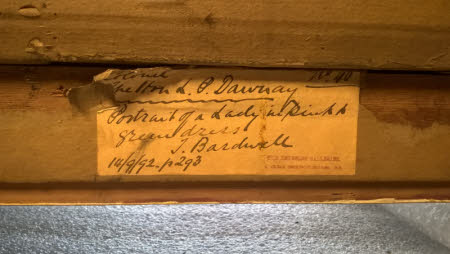 Colonel No 40
The Hon L. P. Dawnay
Portrait of a Lady in Pink &
green dress
T. Bardwell
14/9/92. p293